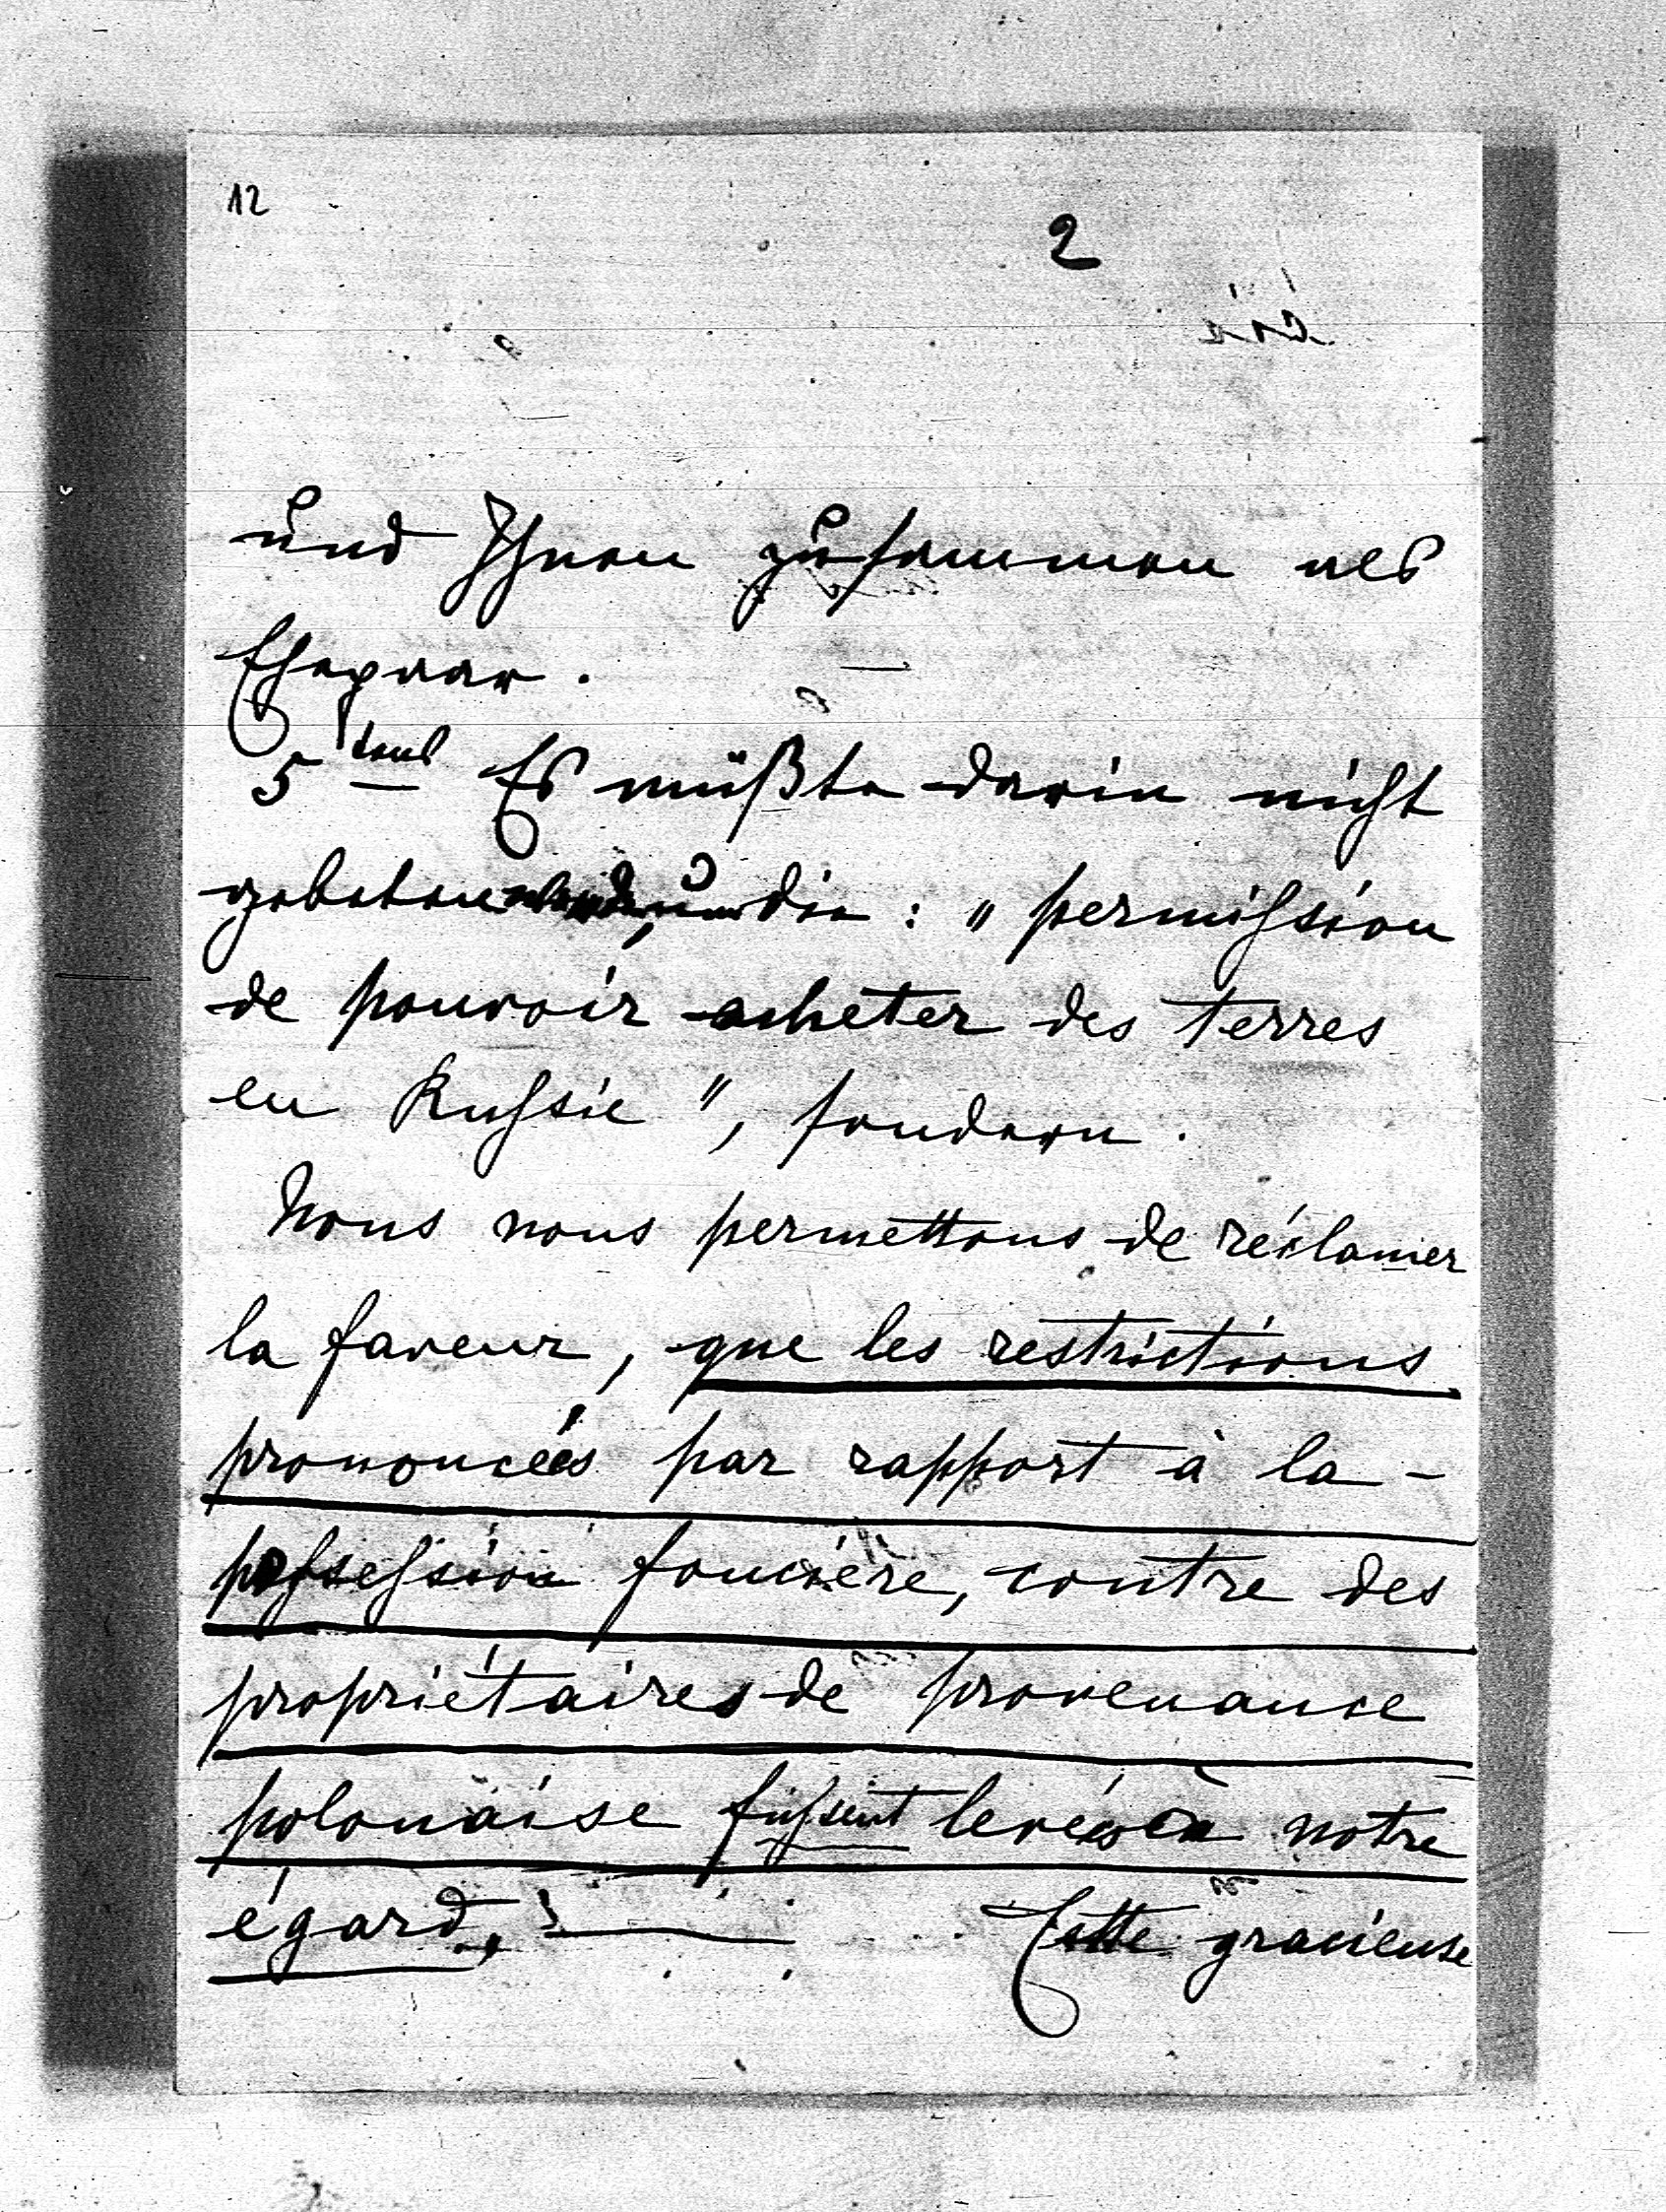 12
2
und Ihnen zusammen als
Ehepaar. —
5tens Es müßte darin nicht
gebeten um die: „permission
de pouvoir acheter des terres
en Russie", sondern.
Nous nous permettons de réclamer
la faveur, que les restrictions
prononcées par rapport à la -
possession foncière, contre des
propriétaires de provenance
polonaise fussent levées à notre
égard, Cette gracieuse